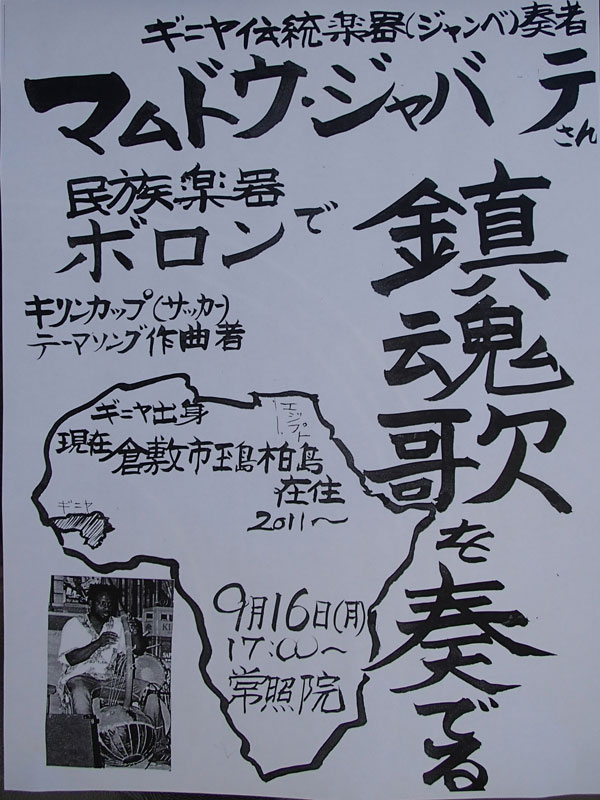 ギニヤ伝統楽器(ジャンベ)奏者
マムドウ・ジャバテさん
民族楽器
ボロンで
鎮魂歌を奏でる
キリンカップ(サッカー)
テーマソング作曲者
エジプト
ギニヤ出身
現在倉敷市玉島柏島
在住
2011〜
ギニヤ
9月16日(月)
17:00〜
常照院